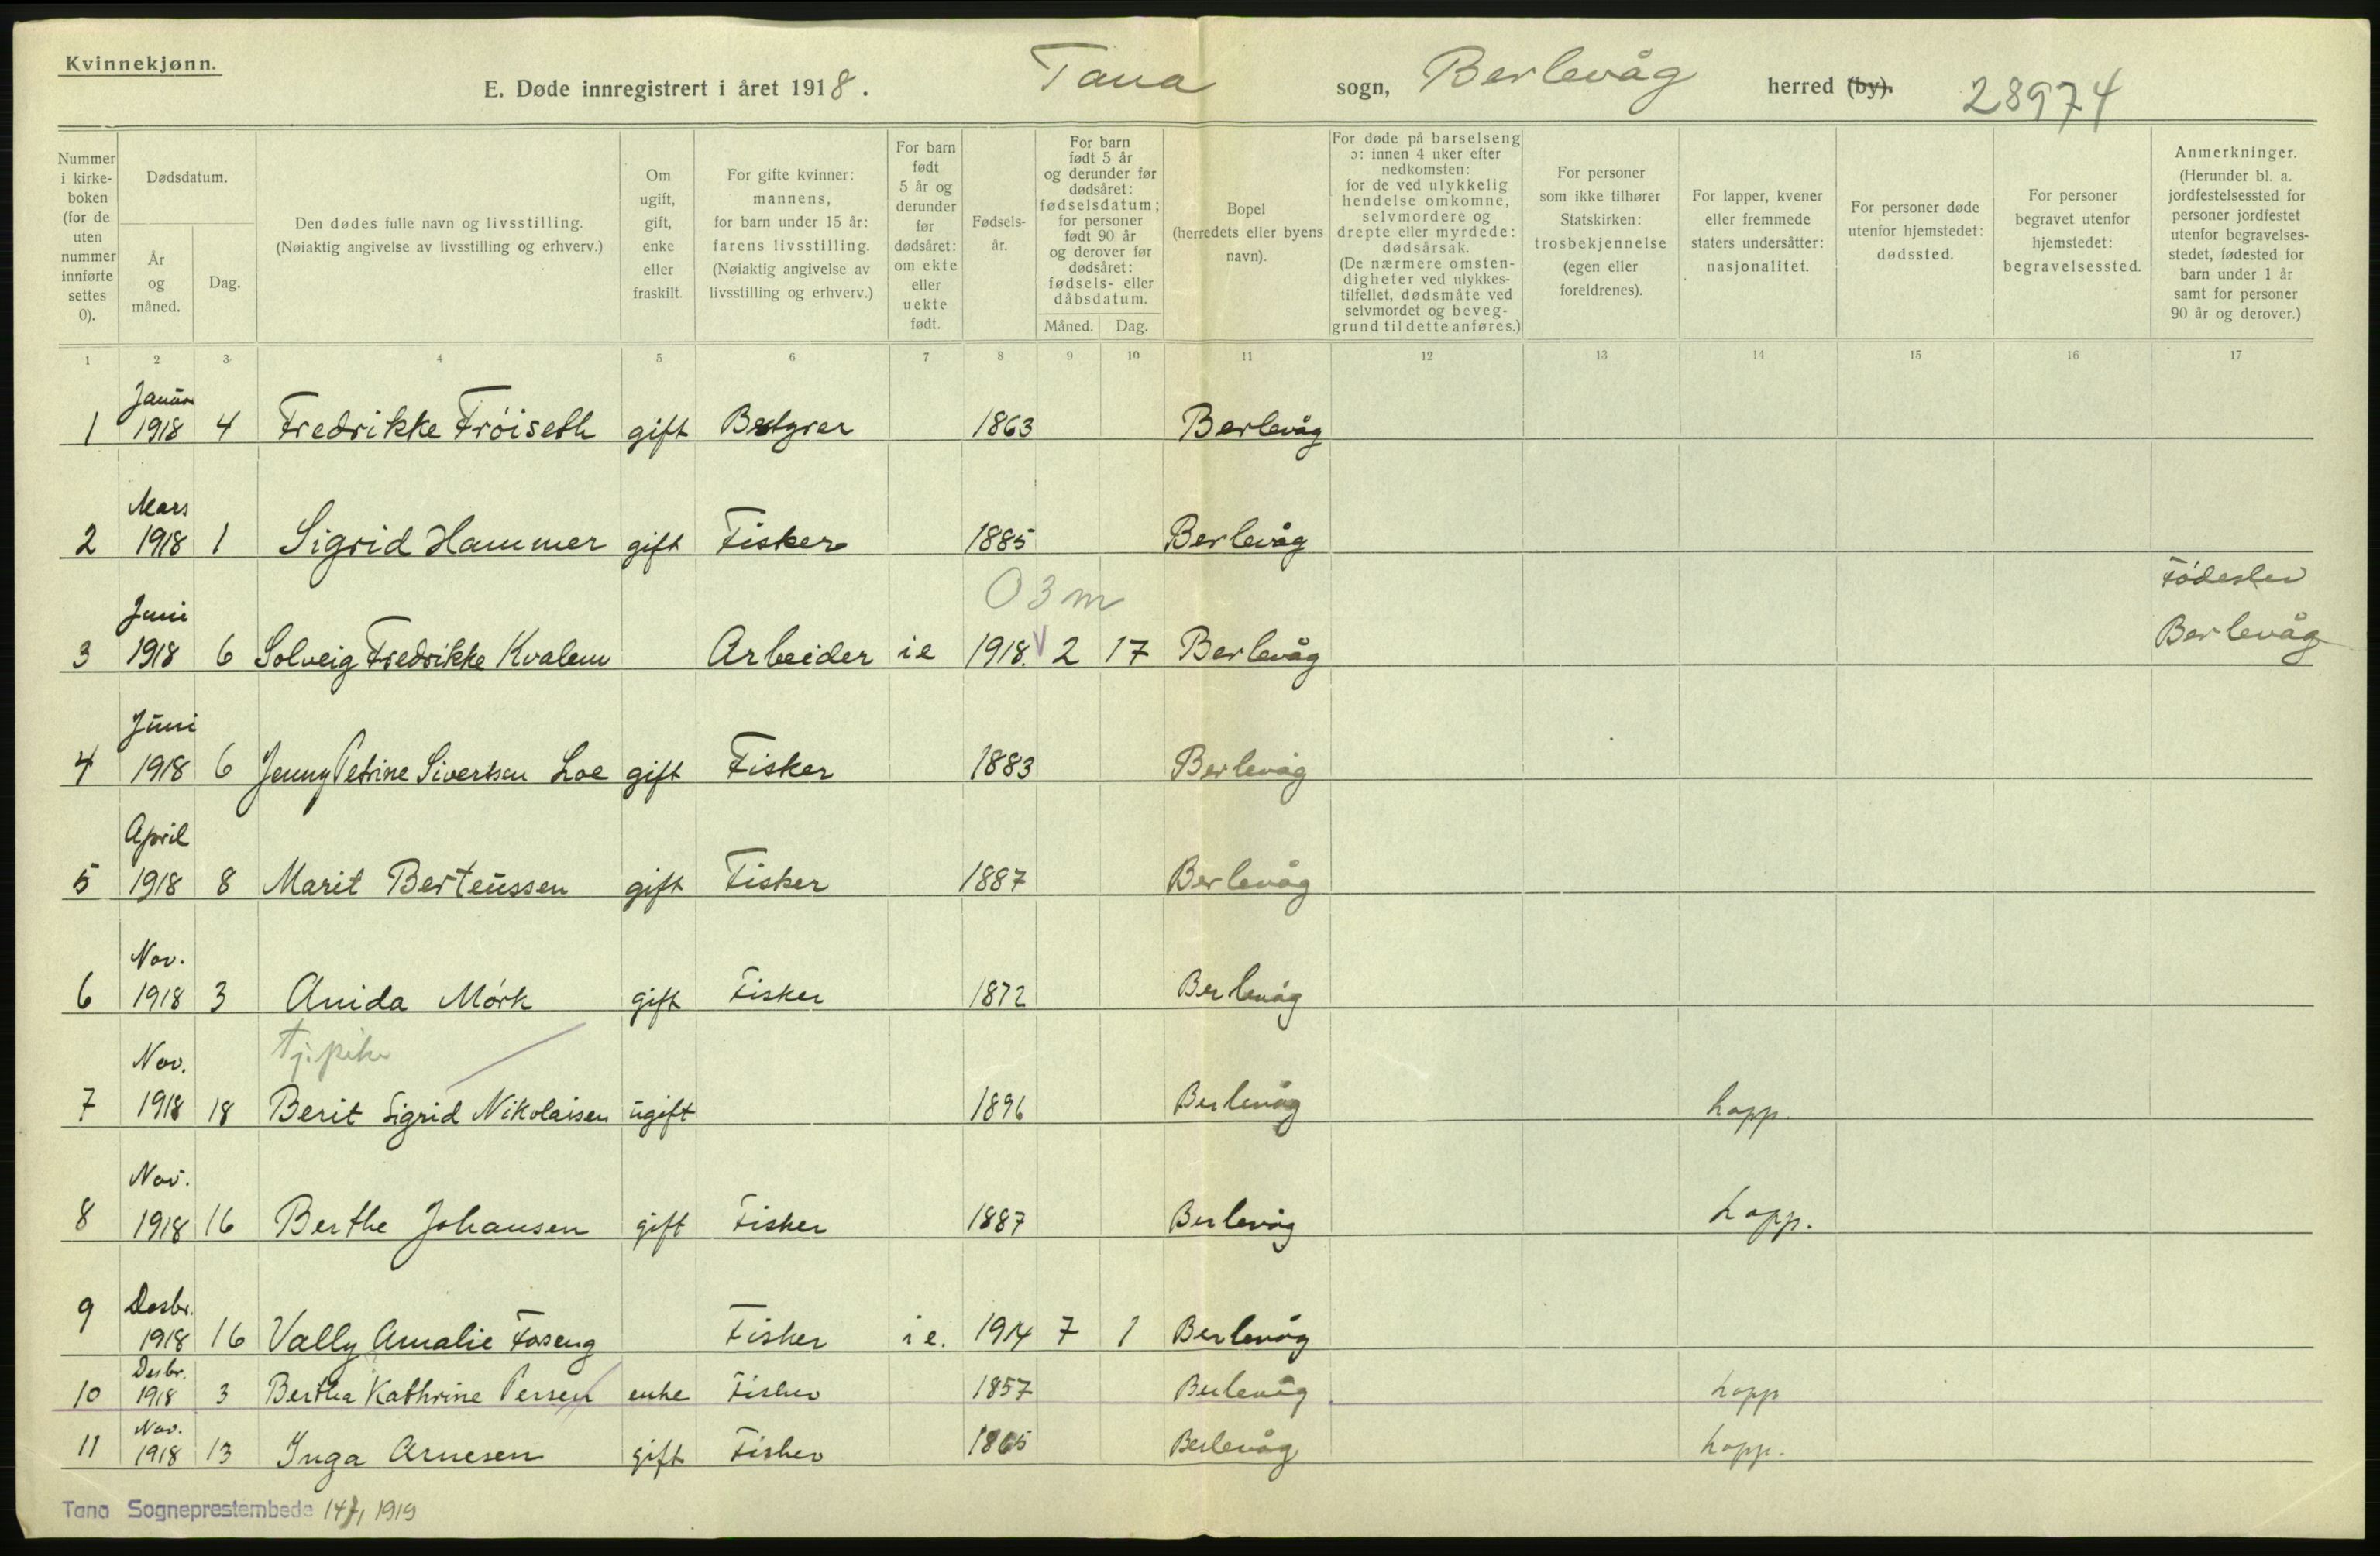 Kvinnekjønn.
E. Døde innregistrert i året 1918. Tana sogn, Berlevåg herred (by). 28974
Nummer i kirke-boken (for de uten nummer innførte settes 0).
Dødsdatum.
År og måned.
Dag.
Den dødes fulle navn og livsstilling. (Nøiaktig angivelse av livsstilling og erhverv.)
Om ugift, gift, enke eller fraskilt.
For gifte kvinner: mannens, for barn under 15 år: farens livsstilling. (Nøiaktig angivelse av livsstilling og erhverv.)
For barn født 5 år og derunder før dødsåret: om ekte eller uekte født.
Fødsels-år.
For barn født 5 år og derunder før dødsåret: fødselsdatum; for personer født 90 år og derover før dødsåret: fødsels- eller dåbsdatum.
Måned. Dag.
Bopel (herredets eller byens navn).
For døde på barselseng ɔ: innen 4 uker efter nedkomsten: for de ved ulykkelig hendelse omkomne, selvmordere og drepte eller myrdede: dødsårsak. (De nærmere omsten-digheter ved ulykkes-tilfellet, dødsmåte ved selvmordet og beveg-grund til dette anføres.)
For personer som ikke tilhører Statskirken: trosbekjennelse (egen eller foreldrenes).
For lapper, kvener eller fremmede staters undersåtter: nasjonalitet.
For personer døde utenfor hjemstedet: dødssted.
For personer begravet utenfor hjemstedet: begravelsessted.
Anmerkninger. (Herunder bl. a. jordfestelsessted for personer jordfestet utenfor begravelses-stedet, fødested for barn under 1 år samt for personer 90 år og derover.)
1 2 3 4 5 6 7 8 9 10 11 12 13 14 15 16 17
Januar
1 1918 4 Fredrikke Fröiseth gift Bestyrer 1863 Berlevåg
Mars
2 1918 1 Sigrid Hammer gift Fisker 1885 Berlevåg
0 3 m
Juni
3 1918 6 Solveig Fredrikke Kvalem Arbeider ie 1918. 2 17 Berlevåg Berlevåg
Juni
4 1918 6 Jenny Petrine Sivertsen Loe gift Fisker 1883 Berlevåg
April
5 1918 8 Marit Berteussen gift Fisker 1887 Berlevåg
Nov.
6 1918 3 Anida Mörk gift Fisker 1872 Berlevåg
Nov. Tj.pike
7 1918 18 Berit Sigrid Nikolaisen ugift 1896 Berlevåg Lapp.
Nov.
8 1918 16 Berthe Johansen gift Fisker 1887 Berlevåg Lapp.
Desbr.
9 1918 16 Vally Amalie Foseng Fisker ie. 1914 7 1 Berlevåg
Desbr.
10 1918 3 Bertha Kathrine Persen enke Fisker 1857 Berlevåg Lapp
Nov.
11 1918 13 Inga Arnesen gift Fisker 1865 Berlevåg Lapp.
Tana Sogneprestembede 1919